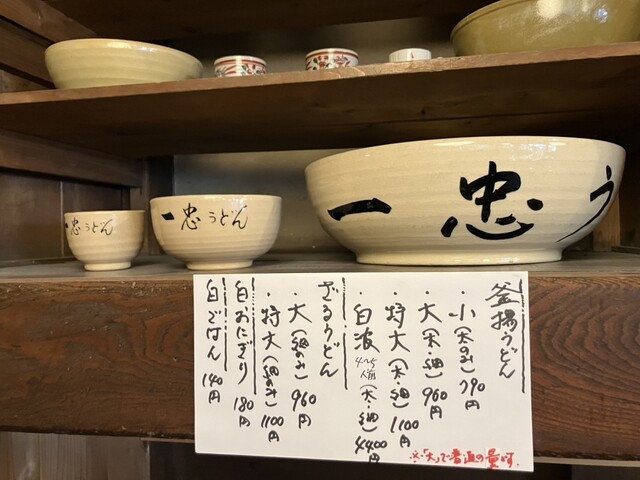 一忠うどん
一忠うどん
一忠う
釜揚うどん
・小(太のみ)790円
・大(太・細)960円
・特大(太・細)1100円
・白波4~5人前(太・細)4400円
ざるうどん
・大(細のみ)960円
・特大(細のみ)1100円
白おにぎり 180円
白ごはん 140円
※「大」で普通の量です。